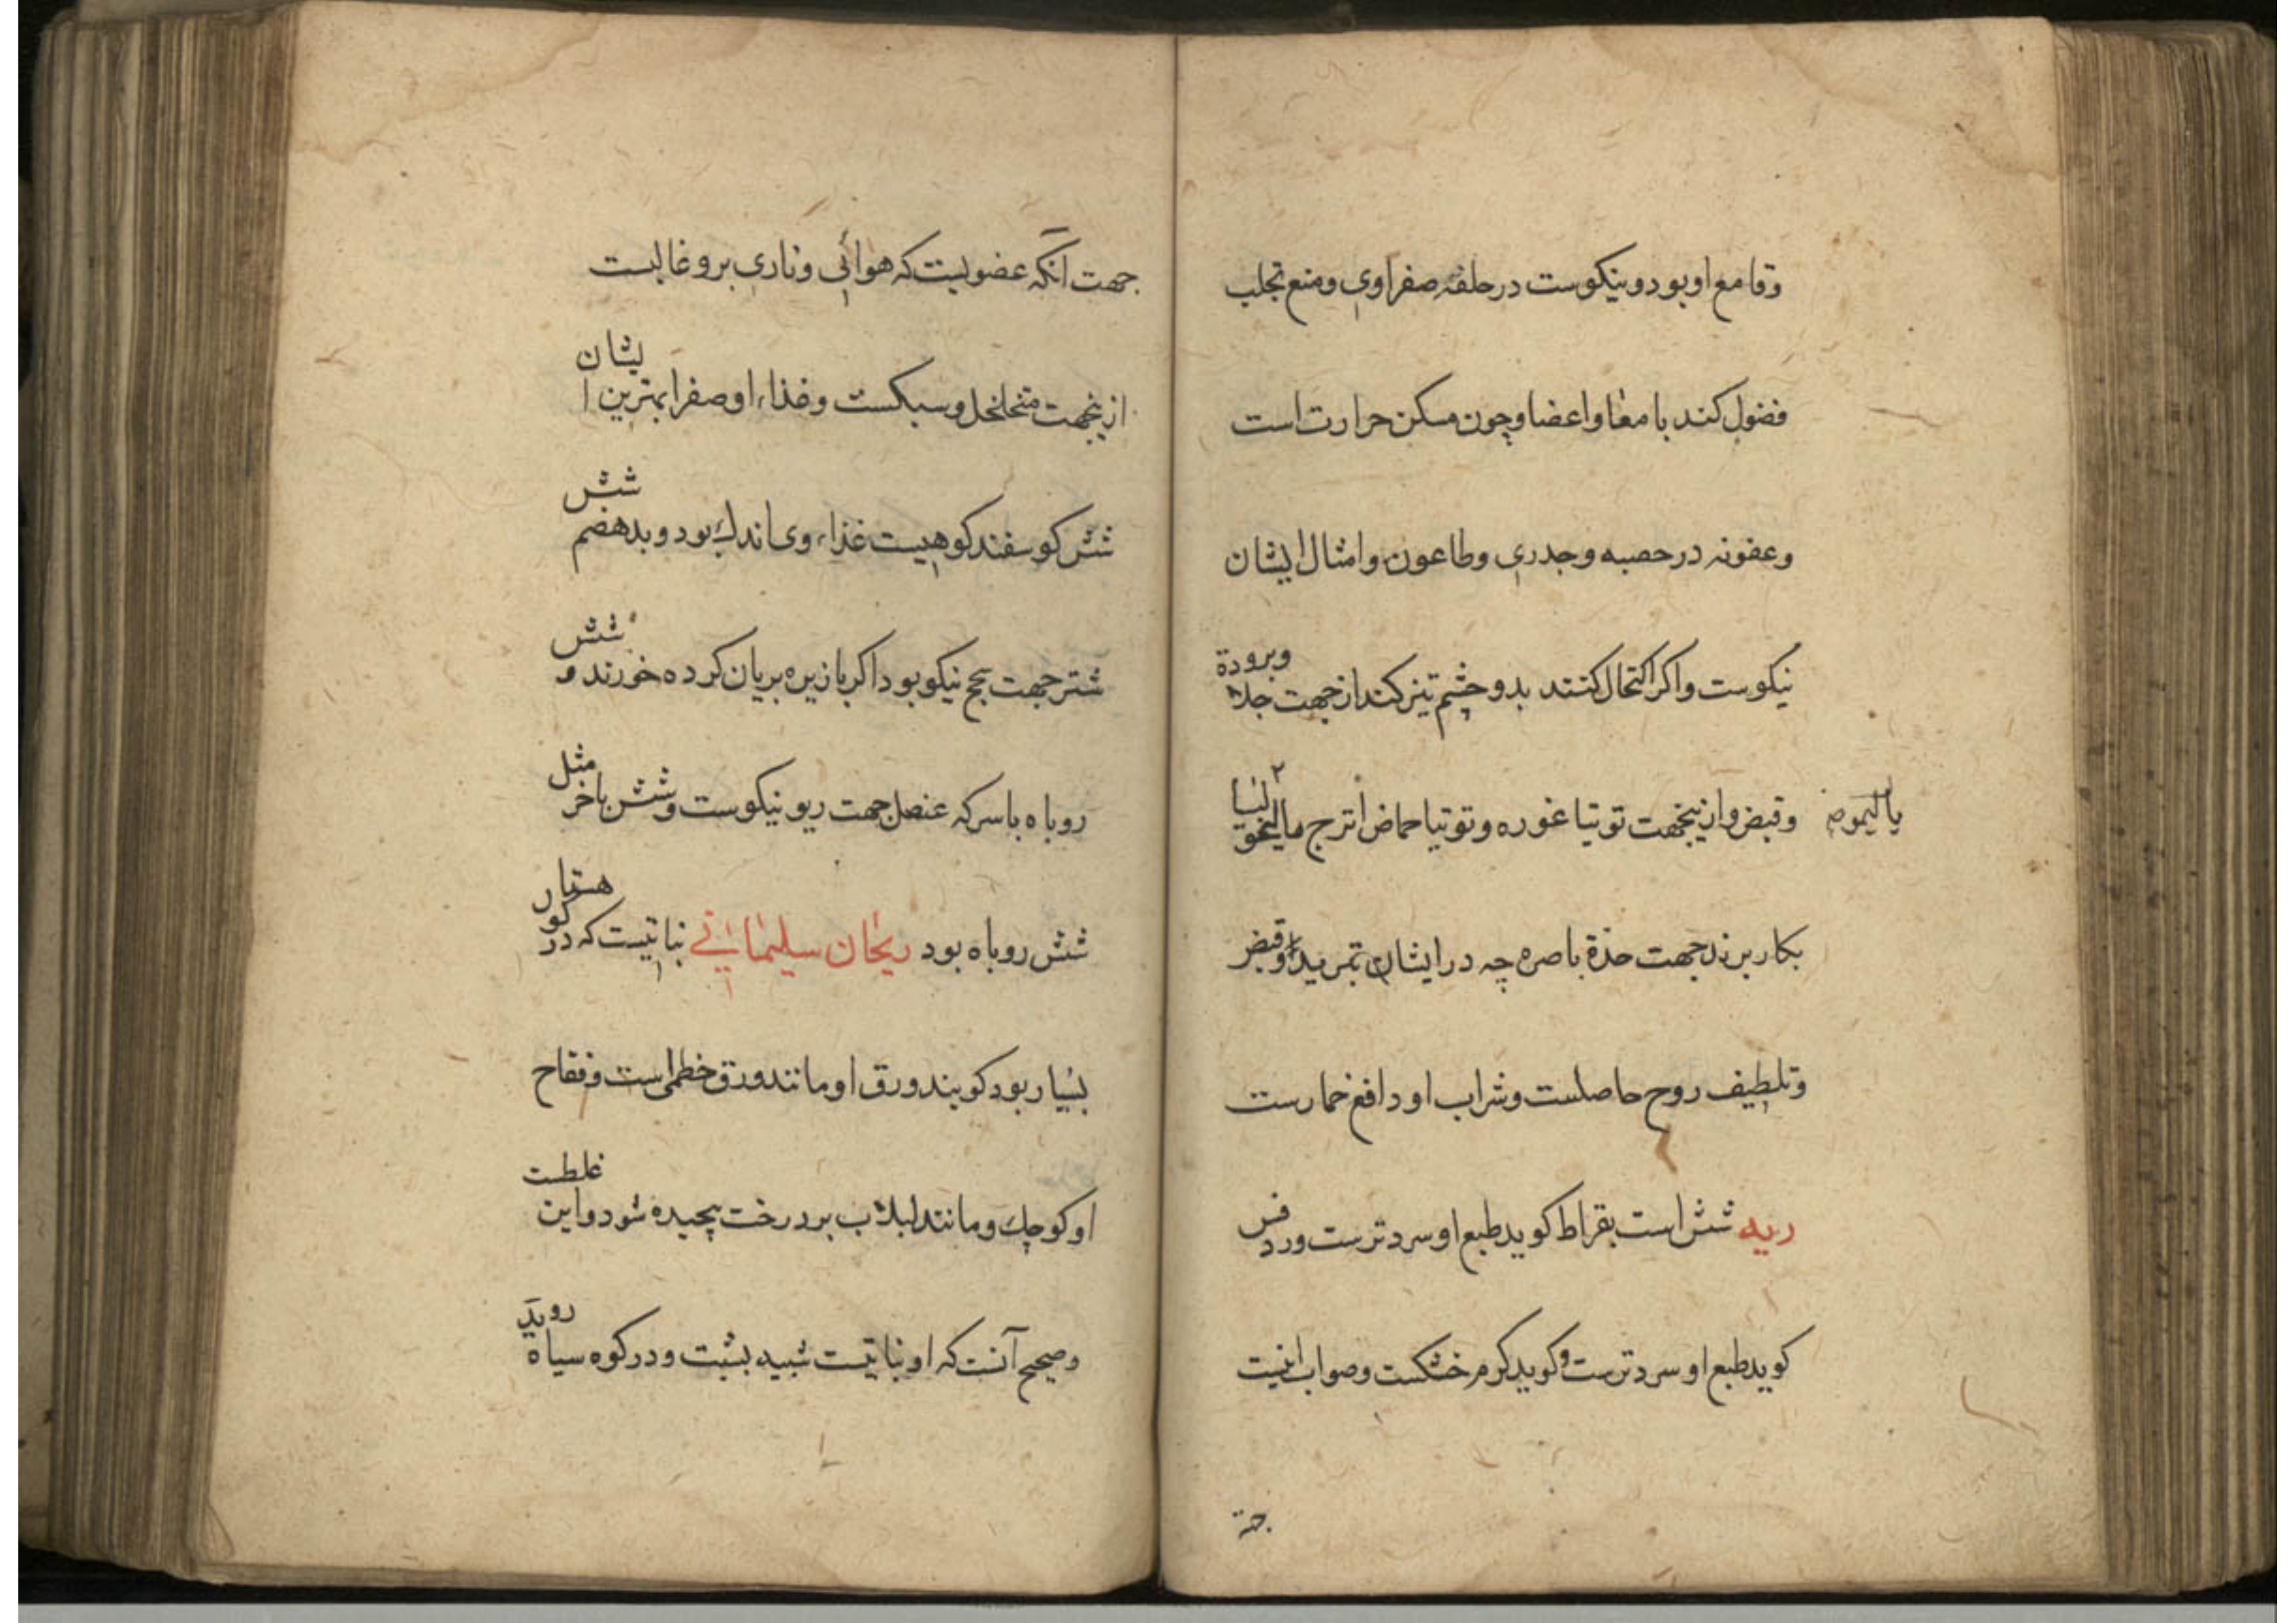 وقامع او بود و نیکوست در حلقه صفراوی و منع تجلب
فضول کند بامعا و اعضا و چون مسکن حرارت است
وعفونه در حصبه و جدری و طاعون و امثال ایشان
نیکوست و اکر اکتحال کنند بدو چشم تیز کند از جهت جلا وبرودة
وقبض و ازینجهت توتیا غوره و توتیا حماض اترج مالیخولیا
بکار برند جهت حدة باصره چه در ایشان تبرید وقبض
وتلطیف روح حاصلست و شراب او دافع خمارست
ریه شش است بقراط کوید طبع او سرد ترست ورد فس
کوید طبع او سرد ترست و کوید کرم خشکست وصواب اینست
جهة
جهت آنکه عضویست که هوائی و ناری برو غالبست
ازینجهت متخلخل و سبکست و غذاء او صفرا بهترین ایشان
شش کوسفند کوهیست غذاء وی اندك بود و بد هضم شش
شتر جهت بجح نیکو بود اکر بازیره بریان کرده خورند و شش
روباه باسرکه عنصل جهت ربو نیکوست و شش باخر مثل
شش روباه بود ریحان سلیمانی نباتیست که در کو هستار
بسیار بود کویند ورق او مانند ورق خطمی است و فقاح
او کوچك و مانند لبلاب بر درخت پیچیده شود و این غلطست
وصحیح آنست که او نباتیست شبیه بشبت و در کوه سیاه روید